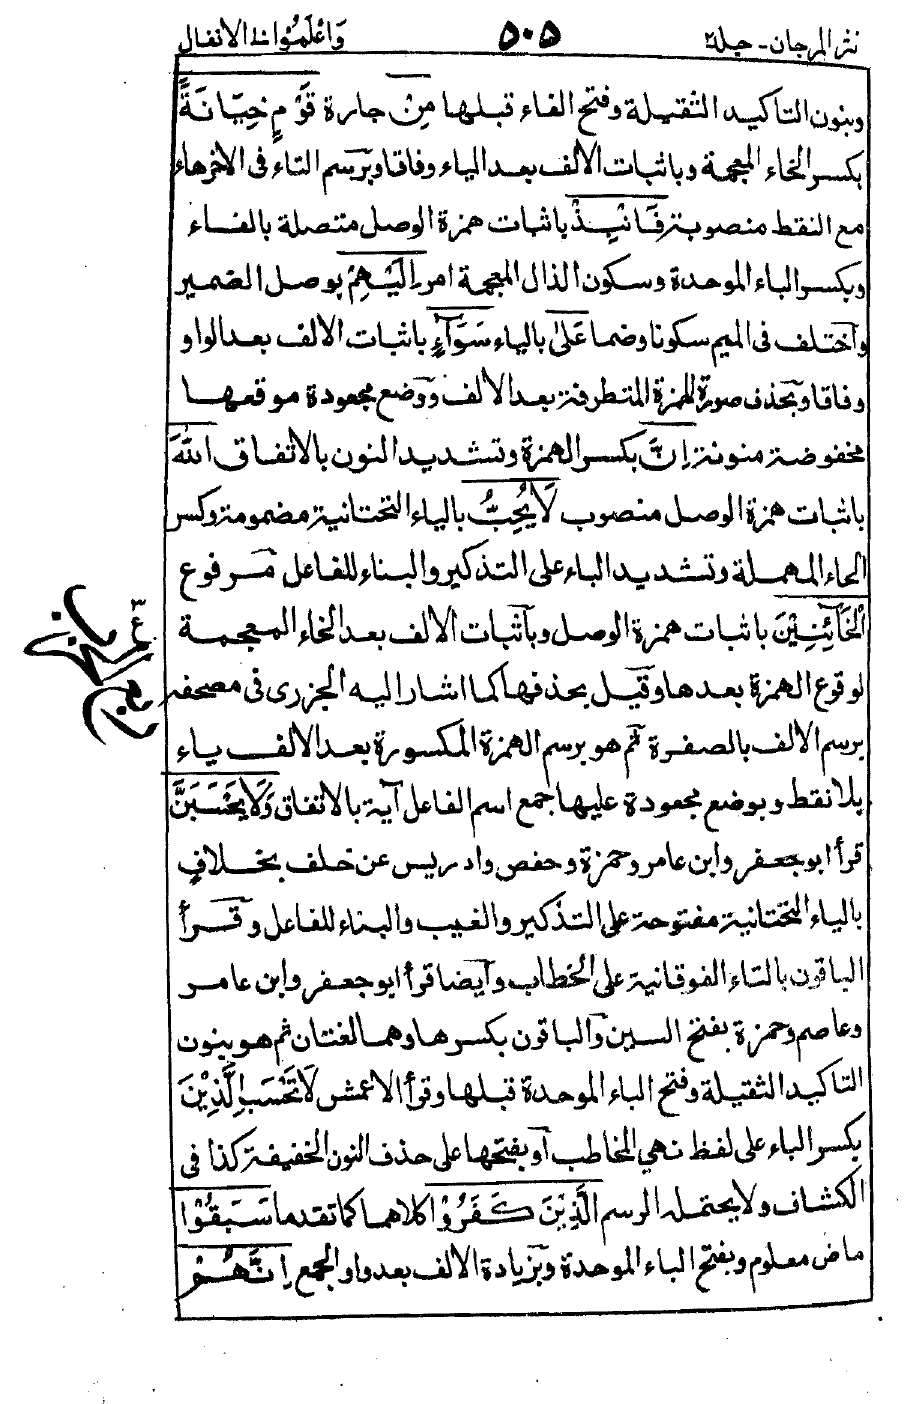 نثر المرجان - جلد٢ ٥٠٥ وَاعْلَمُوْا الانفال
وبنون التاكيد الثقيلة وفتح الفاء قبلها مِنْ جارة قَوْمٍ خِيَانَةً
بكسر الخاء المعجمة وباثبات الالف بعد الياء وفاقا وبرسم التاء فى الاخر هاء
مع النقط منصوبة فَانْبِذْ باثبات همزة الوصل متصلة بالفاء
وبكسر الباء الموحدة وسكون الذال المعجمة امر اِلَيْهِمْ بوصل الضمير
واختلف فى الميم سكونا وضما عَلٰى بالياء سَوَآءٍ باثبات الالف بعد الواو
وفاقا وبحذف صورة الهمزة المتطرفة بعد الالف ووضع مجعودة موقعها
مخفوضة منونة اِنَّ بكسر الهمزة وتشديد النون بالاتفاق اللّٰهَ
باثبات همزة الوصل منصوب لَا يُحِبُّ بالياء التحتانية مضمومة وكسر
الحاء المهملة وتشديد الباء على التذكير والبناء للفاعل مرفوع
الْخَآئِنِيْنَ باثبات همزة الوصل وباثبات الالف بعد الخاء المعجمة
لوقوع الهمزة بعدها وقيل بحذفها كما اشار اليه الجزرى فى مصحفه
برسم الالف بالصفرة ثم هو برسم الهمزة المكسورة بعد الالف ياء
بلا نقط وبوضع مجعودة عليها جمع اسم الفاعل آية بالاتفاق وَلَا يَحْسَبَنَّ
قرأ ابو جعفر وابن عامر وحمزة وحفص وادريس عن خلف بخلافٍ
بالياء التحتانية مفتوحة على التذكير والغيب والبناء للفاعل وقرأ
الباقون بالتاء الفوقانية على الخطاب وايضا قرأ ابو جعفر وابن عامر
وعاصم وحمزة بفتح السين والباقون بكسرها وهما لغتان ثم هو بنون
التاكيد الثقيلة وفتح الباء الموحدة قبلها وقرأ الاعمش لَا تَحْسَبِ الَّذِيْنَ
بكسر الباء على لفظ نهي المخاطب او بفتحها على حذف النون الخفيفة كذا فى
الكشاف ولا يحتمله الرسم الَّذِيْنَ كَفَرُوْا كلاهما كما تقدما سَبَقُوْا
ماض معلوم وبفتح الباء الموحدة وبزيادة الالف بعد واو الجمع اِنَّهُمْ